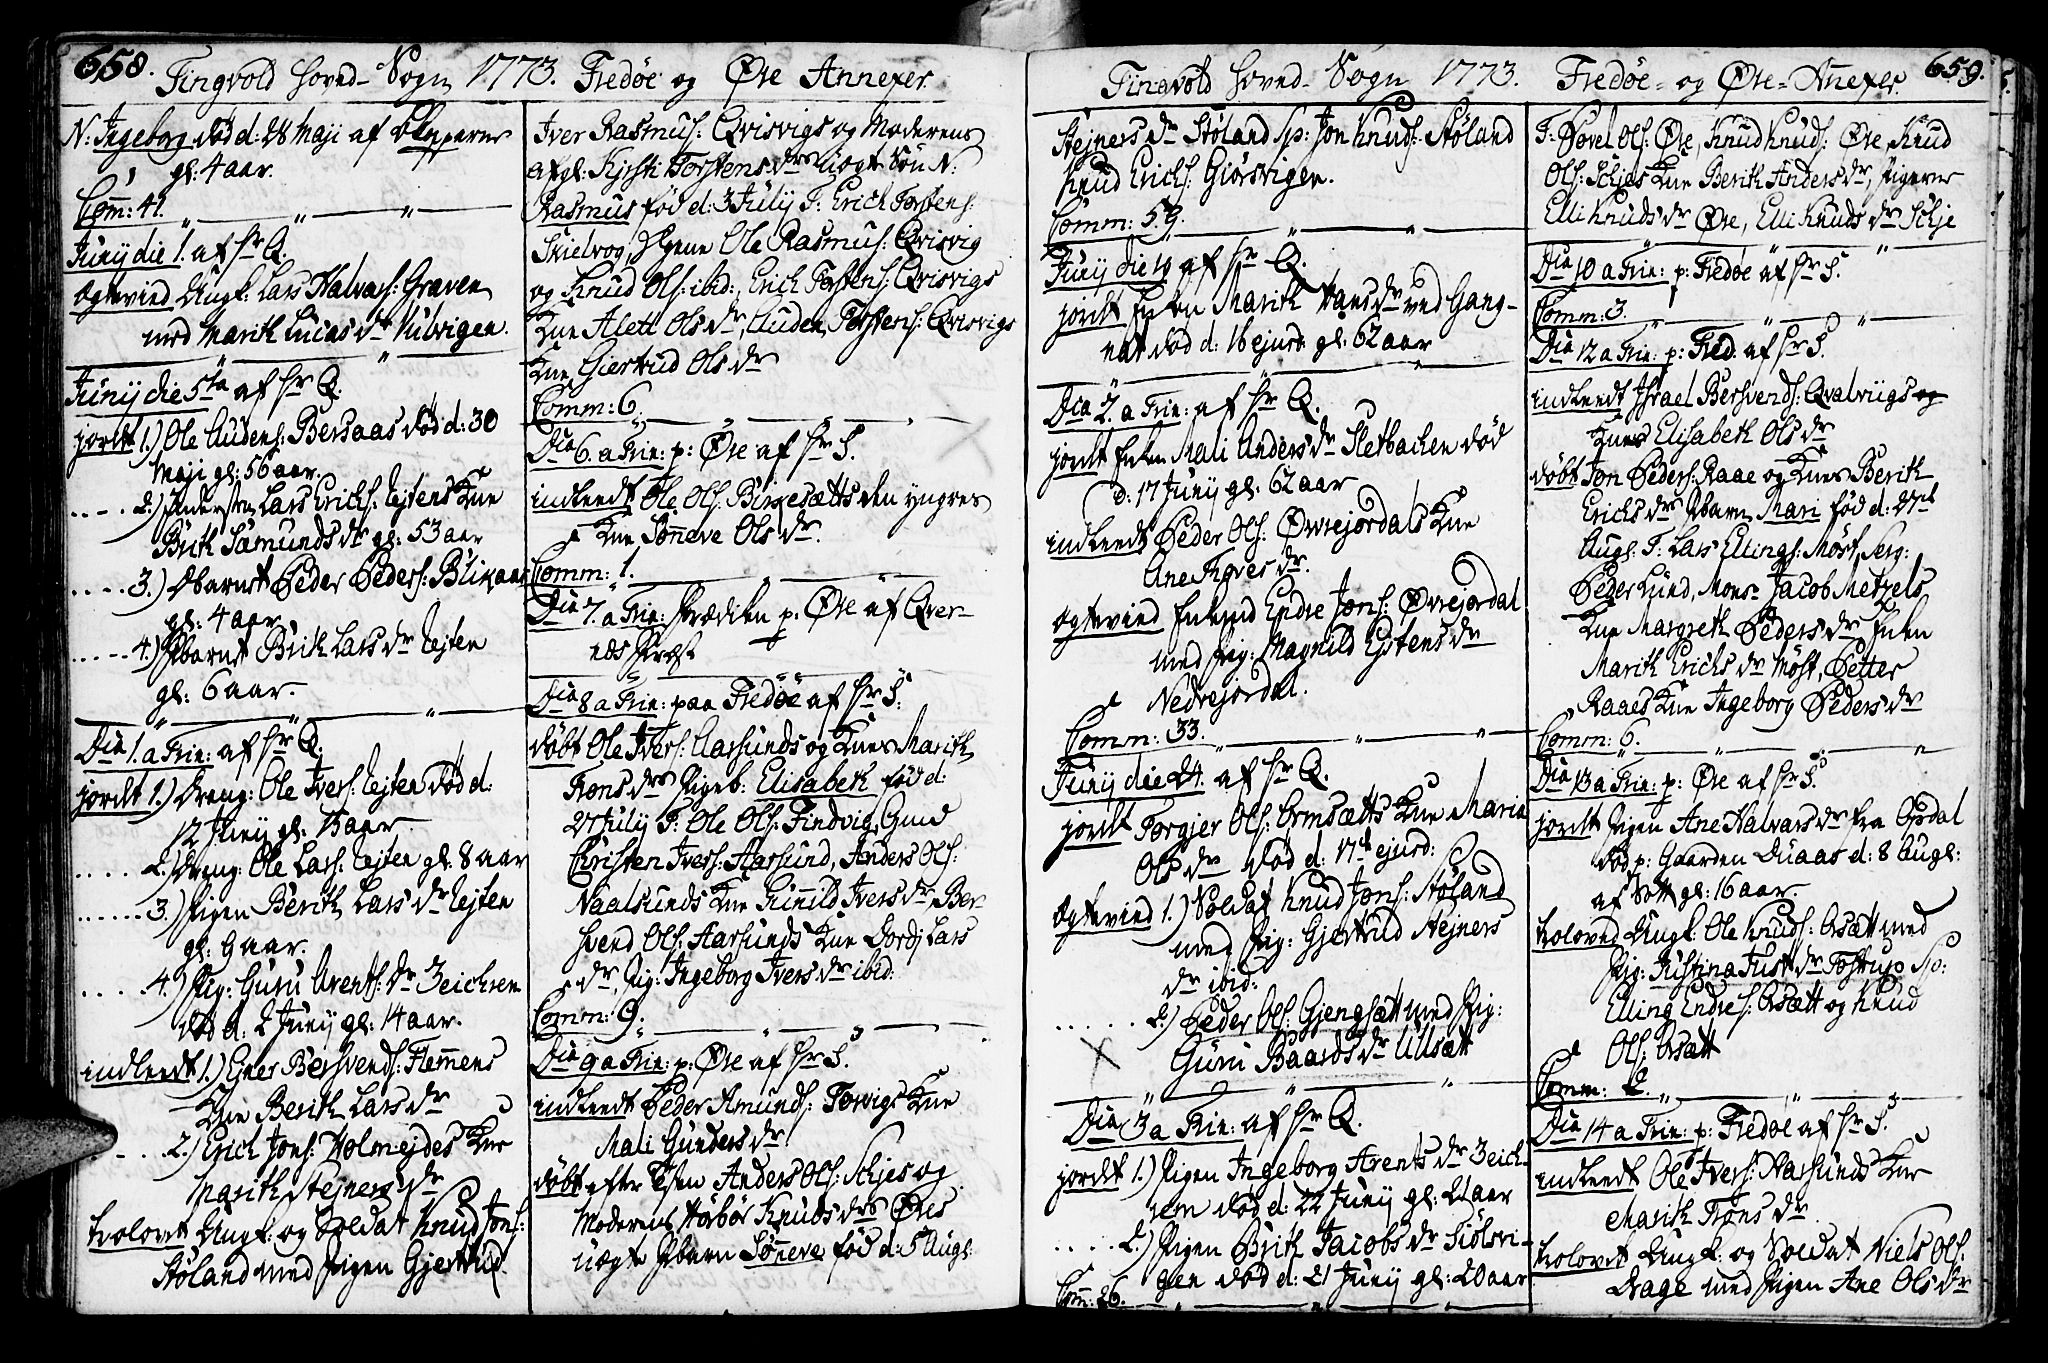 658. Tingvold Hoved-Sogn 1773. Fredøe og Øre Annexer.
N: Ingeborg død d: 28 Maji af Kopperne
gl: 4 aar.
Com̄: 41.
Junij die 1. af Hr Q.
Ogtevied Ungk: Lars Halvars: Graven
med Marith Lucas Dr Hulvigen.
Junij die 5ta af Hr Q.
jordt 1.) Ole Audens: Bersaas død d: 30
Maji gl: 56 aar.
2.) Lars Erichs: Kne
Brith Samunds Dr gl: 53 aar
3.) Dbarnet Peder Peders: Blikaas
gl: 4 aar
4.) Pbarnet Brith Lars Dr
gl: 6 aar.
Dca 1. a Trin: af Hr Q.
jordt 1.) Dreng: Ole Ivers: død d:
12 Junij gl: 15 aar.
2.) Dreng: Ole Lars: gl: 8 aar
3.) Pigen Berith Lars Dr
gl: 9 aar.
4.) Pig: Guru Arents: Dr Zeichsen
død d. 2 Junij gl: 14 aar.
indleedt 1.) Ejner Bersvends: Flem̄ens
Kne Berith Lars Dr
2.) Erich Jons: Holmejdes Kne
Marith Stejners Dr
trolovet Ungk: og Soldat Knud Jons:
Støland med Pigen Gjertrud
Iver Rasmus: Qvisvigs og Moderens
afgl: Kjrsti Torstens Drs uægte Søn N:
Rasmus fød d: 3 July F: Erich Torstens:
Skielvog, Ole Rasmus: Qvisvig
og Knud Ols: ibid:, Erich Torstens: Qvisvigs
Kne Alett Ols Dr, Auden Torstens: Qvisvigs
Kne Giertrud Ols Dr
Comm: 6.
Dca 6. a Trin: p: Øre af Hr S.
indleedt Ole Ols: Birkesætts den yngres
Kne Søn̄eve Ols Dr.
Comm: 1.
Dca 7. a Trin: Prædiken p: Øre af Qver-
nds Præst
Dca 8 a Trin: paa Fredøe af Hr S:
døbt Ole Ivers: Aarsunds og Knes Marith
Trons Drs Pigeb: Elisabeth fød d:
27 July F: Ole Ols: Findvig, Gmd
Christen Ivers: Aarsund, Anders Ols:
Naalsunds Kne Gunnild Ivers Dr, Ber-
svend Ols: Aarsunds Kne Dordj Lars
Dr, Pig: Ingeborg Ivers Dr ibid:
Comm: 9.
Dca 9 a Trin: p: Øre af Hr S.
indleedt Peder Amunds: Torvigs Kne
Mali Gunders Dr
døbt efter Anders Ols: Schjes og
Moderens Knuds Drs Øres
uægt Pbarn Søn̄eve fød d: 5 Aug:
Tingvold Hoved-Sogn 1773. Fredøe- og Øre-An̄exer. 659.
Stejners Dr Støland Sp: Jon Knuds: Støland
Knud Erichs: Giørsvigen.
Comm: 59.
Junij die 19 af Hr Q.
jordt Enken Marith Hans Dr ved Gang-
nat død d: 16 ejusd gl: 62 aar
Dca 2. a Trin: af Hr Q.
jordt Enken Mali Anders Dr Sletbachen død
d: 17 Junij gl: 62 aar
indleedt Peder Ols: Øvrejordals Kne
Ane Tores Dr.
Ogtevied Enkmd Endre Jons: Øvrejordal
med Pig: Magnild Ejstens Dr
Nedrejordal.
Comm: 33.
Junij die 24. af Hr Q.
jordt Torgjer Ols: Ormsætts Kne Marin
Ols Dr død d: 17de ejusd:
Ogtevied 1.) Soldat Knud Jons: Støland
med Pig: Gjertrud Stejners
Dr ibid:
2.) Peder Ols: Gjengsætt med Pig:
Guru Baards Dr Ulsætt
Dca 3 a Trin: af Hr Q.
jordt 1.) Pigen Ingeborg Arents Dr Zeich-
sem død d: 22 Junij gl: 21 aar
2.) Pigen Brith Jacobs Dr Siølsvi-
gen død d: 21 Junij gl: 20 aar
Com̄: 26.
F: Povel Ols: Øre, Knud Knuds: Øre, Knud
Ols: Schjes Kne Berith Anders Dr, Pigerne
Elli Knuds Dr Øre, Elli Knuds Dr Schje
Dca 10 a Trin: p: Fredøe af Hr S.
Comm: 3.
Dca 12 a Trin: p: Fred: af Hr S.
indleedt Jsrael Bersvends: Qvalviigs og
Knes Elisabeth Ols Dr
døbt Jon Peders: Raae og Knes Berith
Erichs Drs Pbarn Mari fød d: 27de
Aug: F: Lars Ellings: Møst, Serg:
Peder Lund, Monsr Jacob Metzels
Kne Margreth Peders Dr, Enken
Marith Erichs Dr Møst, Petter
Raaes Kne Ingeborg Peders Dr
Comm: 6.
Dca 13 a Trin: p: Øre af Hr S.
jordt Pigen Ane Halvars Dr fra Opdal
død p: Gaarden Duaas d: 8 Aug:
af Sott gl: 16 aar.
troloved Ungk: Ole Knuds: Orsætt med
Pig: Kristina Just Dr Tostrup Sp:
Elling Endres: Orsætt og Knud
Ols: Orsætt
Comm: 2.
Dca 14 a Trin: p: Fredøe af Hr S.
indleedt Ole Ivers: Aarsunds Kne
Marith Trons Dr
trolovet Ungk: og Soldat Niels Ols:
Drage med Pigen Ane Ols Dr